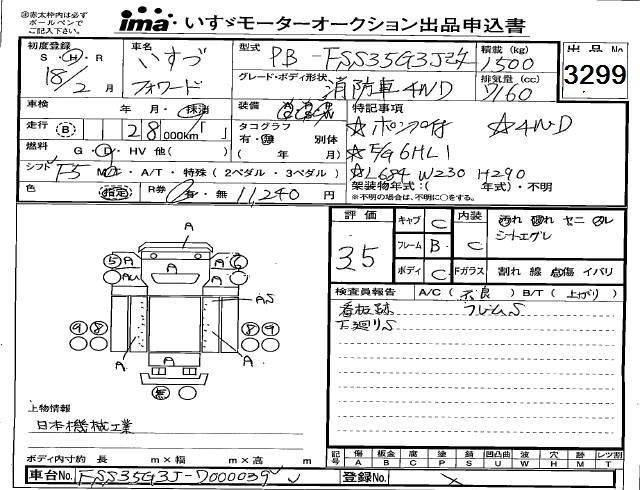 ※赤太枠内は必ず
ボールペンで
ご記入下さい
ima いすゞモーターオークション出品申込書
初度登録 S・H・R 18/2月
車名 いすゞ フォワード
型式 PB-FSS35G3J改
積載 (kg) 1500
出品No 3299
グレード・ボディ形状 消防車4WD
排気量 (cc) 7160
車検 年 月・抹消
装備
特記事項
走行 B 128,000km
タコグラフ 有・無 別体 ( 年 月)
☆ポンプ付 ☆4WD
☆E/G 6HL1
☆L684 W230 H290
燃料 G・D・HV 他( )
シフト F5 M・A/T・特殊 (2ペダル・3ペダル)
色 指定 R券 有・無 11,240円
架装物年式:( 年式)・不明
※不明の場合は、不明に○をする。
評価 3.5
キャブ C
フレーム B
ボディ C
内装 C
汚れ 破れ ヤニ
シートエグレ
Fガラス 割れ 線 点傷 イバリ
検査員報告 A/C (不良) B/T (上がり)
看板跡 フレームS
下廻りS
A
5 A A A 6
AU A A
AS
9 8 8 9
A A A
無
上物情報
日本機械工業
ボディ内寸約 長 m×幅 m×高 m
記号 傷 A 板金 B 腐 C 塗 P 錆 S 凹凸曲 U 波 W 穴 H 痕 M レツ割 T
車台No. FSS35G3J-D000039
登録No.